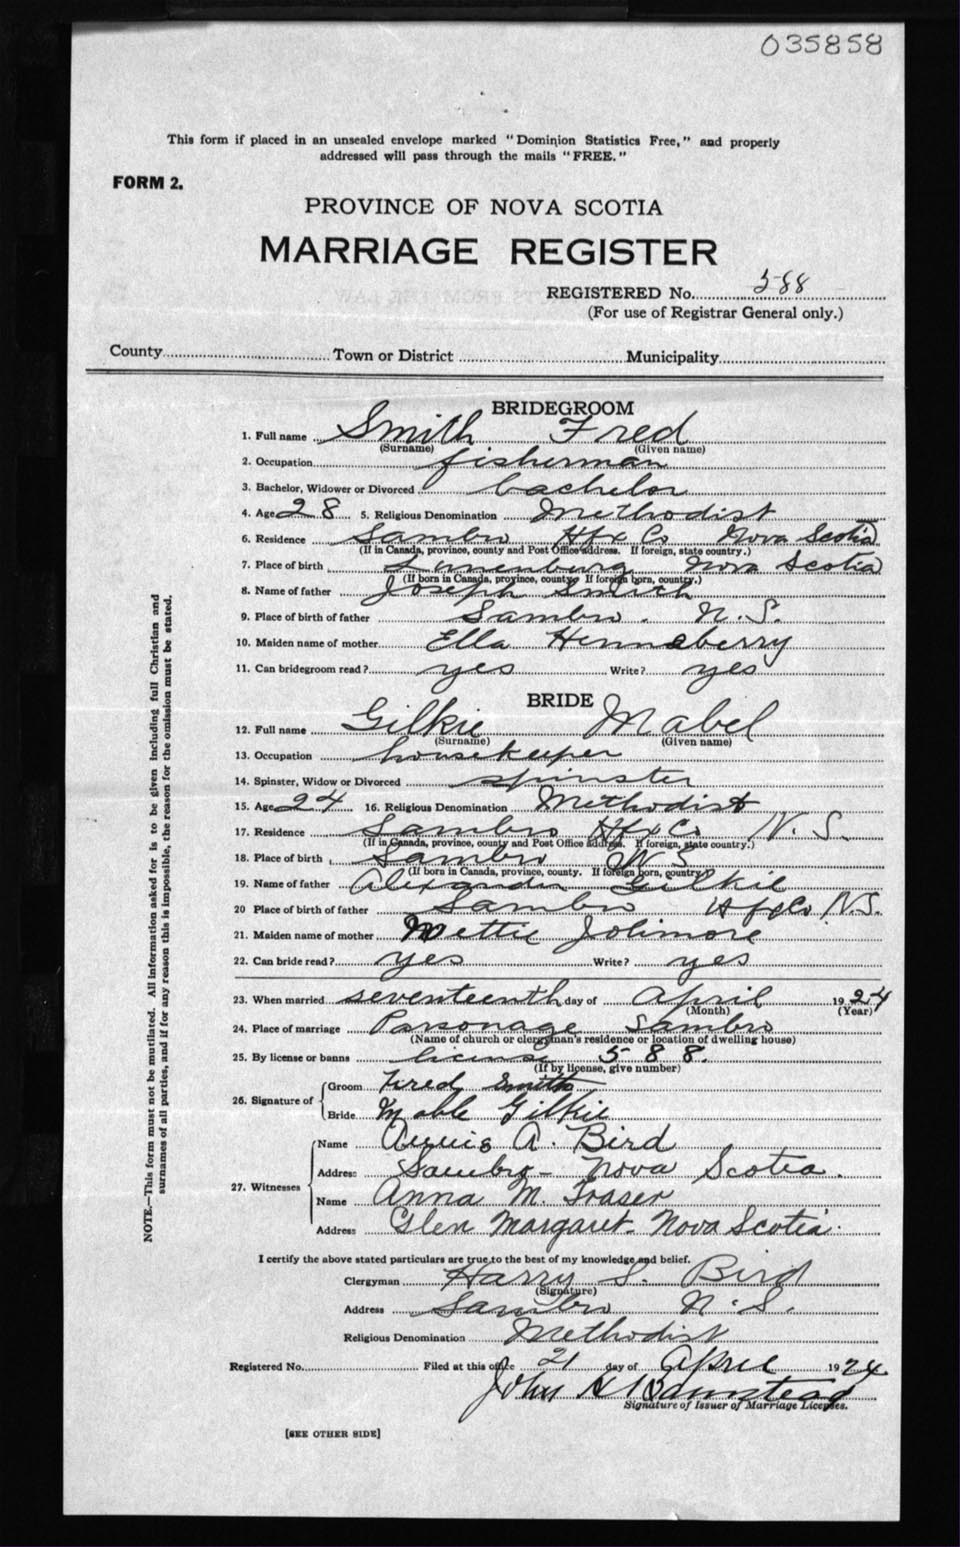 035858
This form if placed in an unsealed envelope marked "Dominion Statistics Free," and properly
addressed will pass through the mails "FREE."
FORM 2.
PROVINCE OF NOVA SCOTIA
MARRIAGE REGISTER
REGISTERED No. 588
(For use of Registrar General only.)
County Town or District Municipality
BRIDEGROOM
1. Full name Smith Fred
(Surname) (Given name)
2. Occupation fisherman
3. Bachelor, Widower or Divorced bachelor
4. Age 28 5. Religious Denomination Methodist
6. Residence Sambro Hfx Co Nova Scotia
(If in Canada, province, county and Post Office address. If foreign, state country.)
7. Place of birth Lunenburg Nova Scotia
(If born in Canada, province, county If foreign born, country.)
8. Name of father Joseph Smith
9. Place of birth of father Sambro. N.S.
10. Maiden name of mother Ella Henneberry
11. Can bridegroom read? yes Write? yes
BRIDE
12. Full name Gilkie Mabel
(Surname) (Given name)
13. Occupation housekeeper
14. Spinster, Widow or Divorced spinster
15. Age 24 16. Religious Denomination Methodist
17. Residence Sambro Hfx Co N.S.
(If in Canada, province, county and Post Office address. If foreign, state country.)
18. Place of birth Sambro N S
(If born in Canada, province, county. If foreign born, country)
19. Name of father Alexander Gilkie
20 Place of birth of father Sambro Hfx Co N.S.
21. Maiden name of mother Mettie Jolimore
22. Can bride read? yes Write? yes
23. When married seventeenth day of April 1924
(Month) (Year)
24. Place of marriage Parsonage Sambro
(Name of church or clergyman's residence or location of dwelling house)
25. By license or banns license 588.
(If by license, give number)
26. Signature of
Groom Fred Smith
Bride Mable Gilkie
27. Witnesses
Name A. Bird
Address Sambro - Nova Scotia.
Name Anna M. Fraser
Address Glen Margaret - Nova Scotia.
I certify the above stated particulars are true to the best of my knowledge and belief.
Clergyman Harry S. Bird
(Signature)
Address Sambro N.S.
Religious Denomination Methodist
Registered No. Filed at this office 21 day of April 1924
John
Signature of Issuer of Marriage Licenses.
[SEE OTHER SIDE]
NOTE.—This form must not be mutilated. All information asked for is to be given including full Christian and
surnames of all parties, and if for any reason this is impossible, the reason for the omission must be stated.